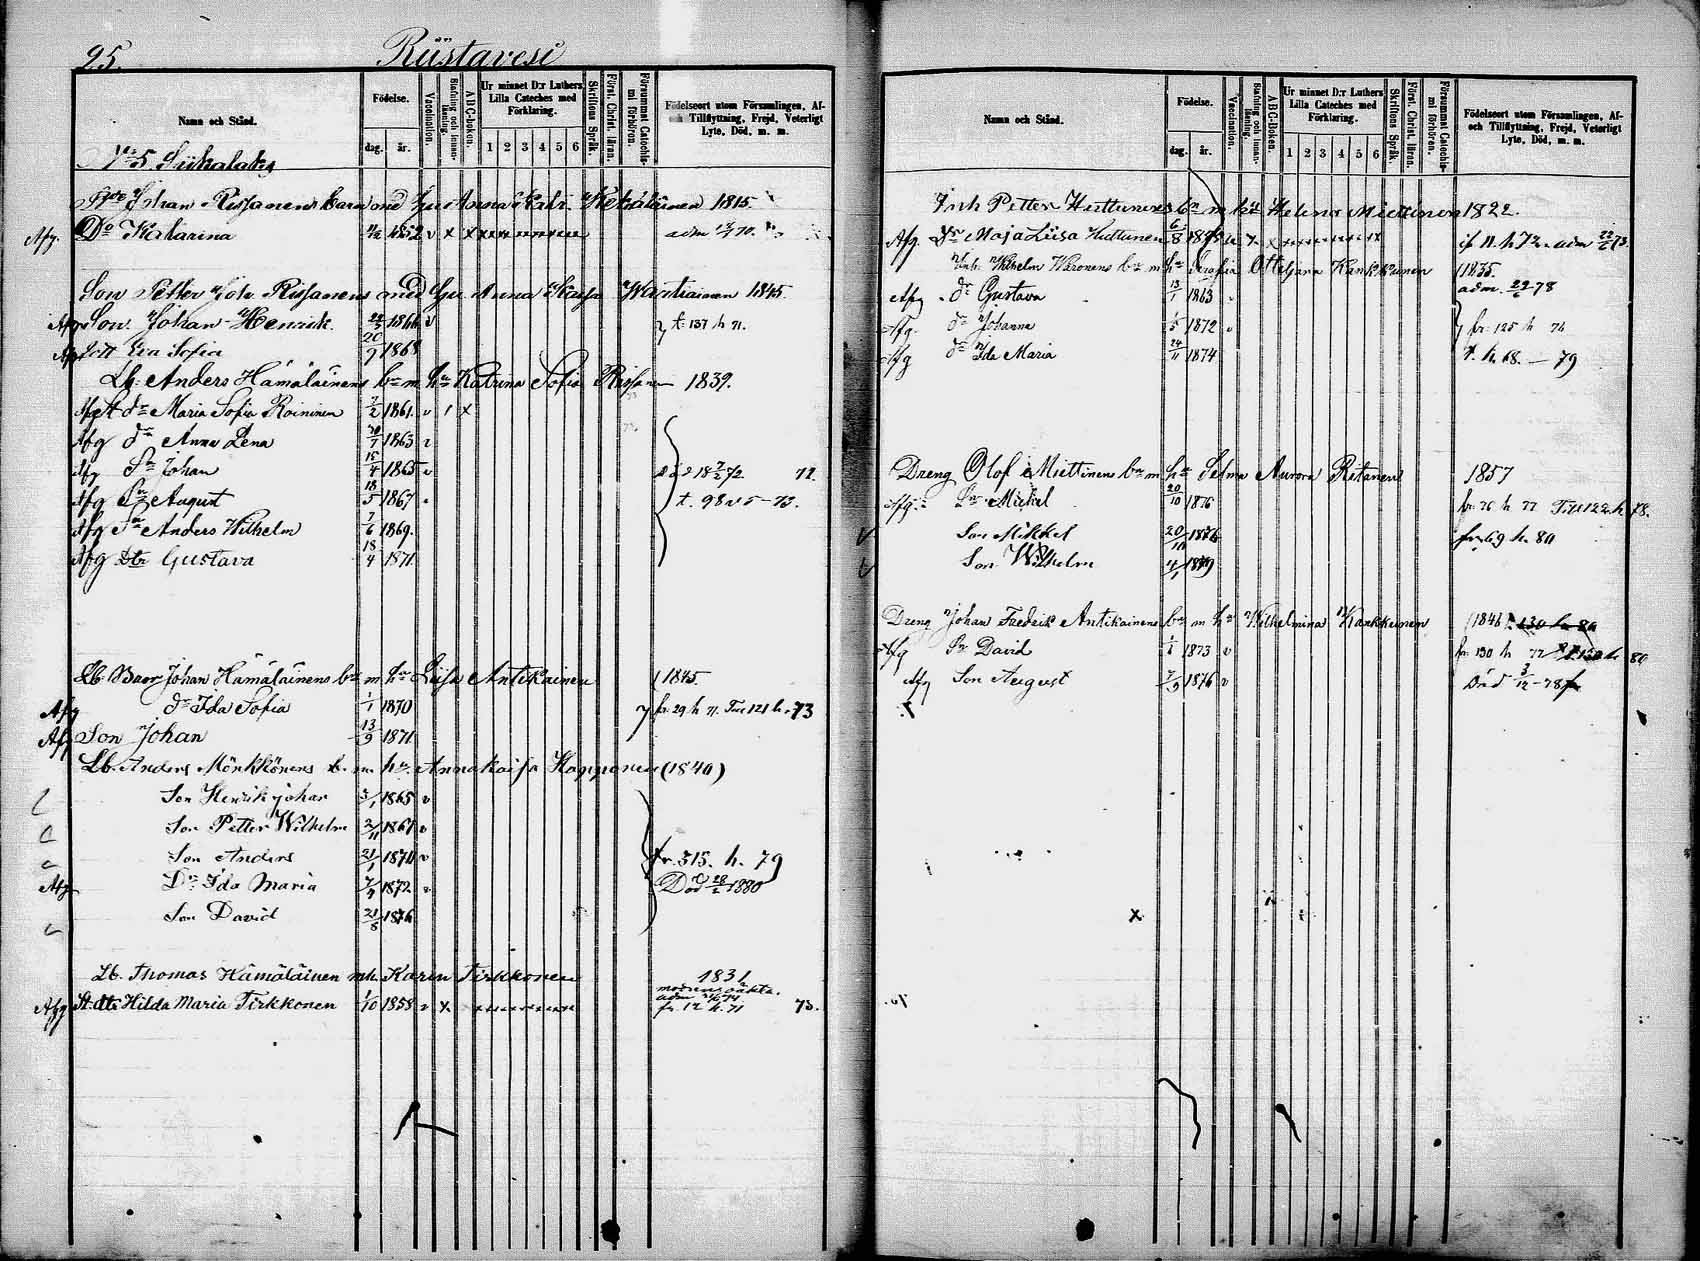 25.
Riistavesi
Namn och Stånd.
Födelse.
dag. år.
Vaccination.
Stafning och Innanläsning.
A B C-boken.
Ur minnet D:r Luthers Lilla Cateches med Förklaring.
1 2 3 4 5 6
Skriftens Språk.
Först. Christ. läran.
Försummat Catechismi förhören.
Födelseort utom Församlingen, Af- och Tillflyttning, Frejd, Veterligt Lyte, Död, m. m.
No 5 Siikalaks
Johan Rissanens barn med hu Anna Katr. 1815.
Afg. Do Katarina 1852 v x x adm 70.
Son Petter Joh. Rissanens med Hu Anna Kaisa Wartiainen 1845.
Afg Son Johan Henrik 22/3 1866 v t. 137 h 71.
Afg Dott Eva Sofia 20/9 1868
Lb. Anders Hämäläinens bn m hu Katrina Sofia Rissanen 1839.
Afg St dr Maria Sofia Roininen 7/2 1861. v x
Afg dr Anna Lena 1863 v
Afg Sn Johan 15/4 1865 v 72.
Afg Sn August 18/5 1867 t. 98 v 5 - 73.
Afg Sn Anders Wilhelm 7/6 1869.
Afg Dtr Gustava 18/4 1871
Lb Johan Hämäläinens bn m hu Liisa Antikainen (1845.
Afg dr Ida Sofia 1/1 1870 fr. 29 h 71. 121 h. 73
Afg Son Johan 13/9 1871
Lb. Anders Mönkkönens b. m. hu. Annakaisa Happonen (1840)
Son Henrik Johan 3/1 1865 v
Son Petter Wilhelm 2/11 1867 v
Son Anders 21/1 1870 v fr. 315. h. 79
Afg Dr Ida Maria 7/4 1872 v Död 28/2 1880
Son David 21/8 1876
Lb. Thomas Hämäläinen mh. Karin Tirkkonen 1831
Afg St. dtr Hilda Maria Tirkkonen 1/10 1858 v x fr. 12 h. 71 73.
Namn och Stånd.
Födelse.
dag. år.
Vaccination.
Stafning och Innanläsning.
A B C-boken.
Ur minnet D:r Luthers Lilla Cateches med Förklaring.
1 2 3 4 5 6
Skriftens Språk.
Först. Christ. läran.
Försummat Catechismi förhören.
Födelseort utom Församlingen, Af- och Tillflyttning, Frejd, Veterligt Lyte, Död, m. m.
Inh Petter Huttunens bn m hu Helena Miettinen 1822.
Afg. Dr Maja Liisa Huttunen 6/8 if 11. h 72. adm 73.
Inh. Wilhelm Väronens bn m hu Serafia Ottiljana Kankkunen (1835.
Afg. dr Gustava 13/1 1863 adm. 22/6 -78
Afg. dr Johanna 1/5 1872 v fr. 125 h 76
Afg dr Ida Maria 24/11 1874 t. h 68. - 79
Dreng Olof Miettinens bn m hu Selma Aurora Ritanen 1857
Afg. Sn Mickel 20/10 1876 fr. 76 h 77 122 h 78.
Son Mikkel 20/10 1876 fr 69 h. 80
Son Wilhelm 4/1 1879
Dreng Johan Fredrik Antikainens bn m hu Wilhelmina Kankkunen (1846)
Afg Sn David 1873 v fr. 130 h 77 t 130 h 80
Afg Son August 7/9 1876 v Död 3/12 -78